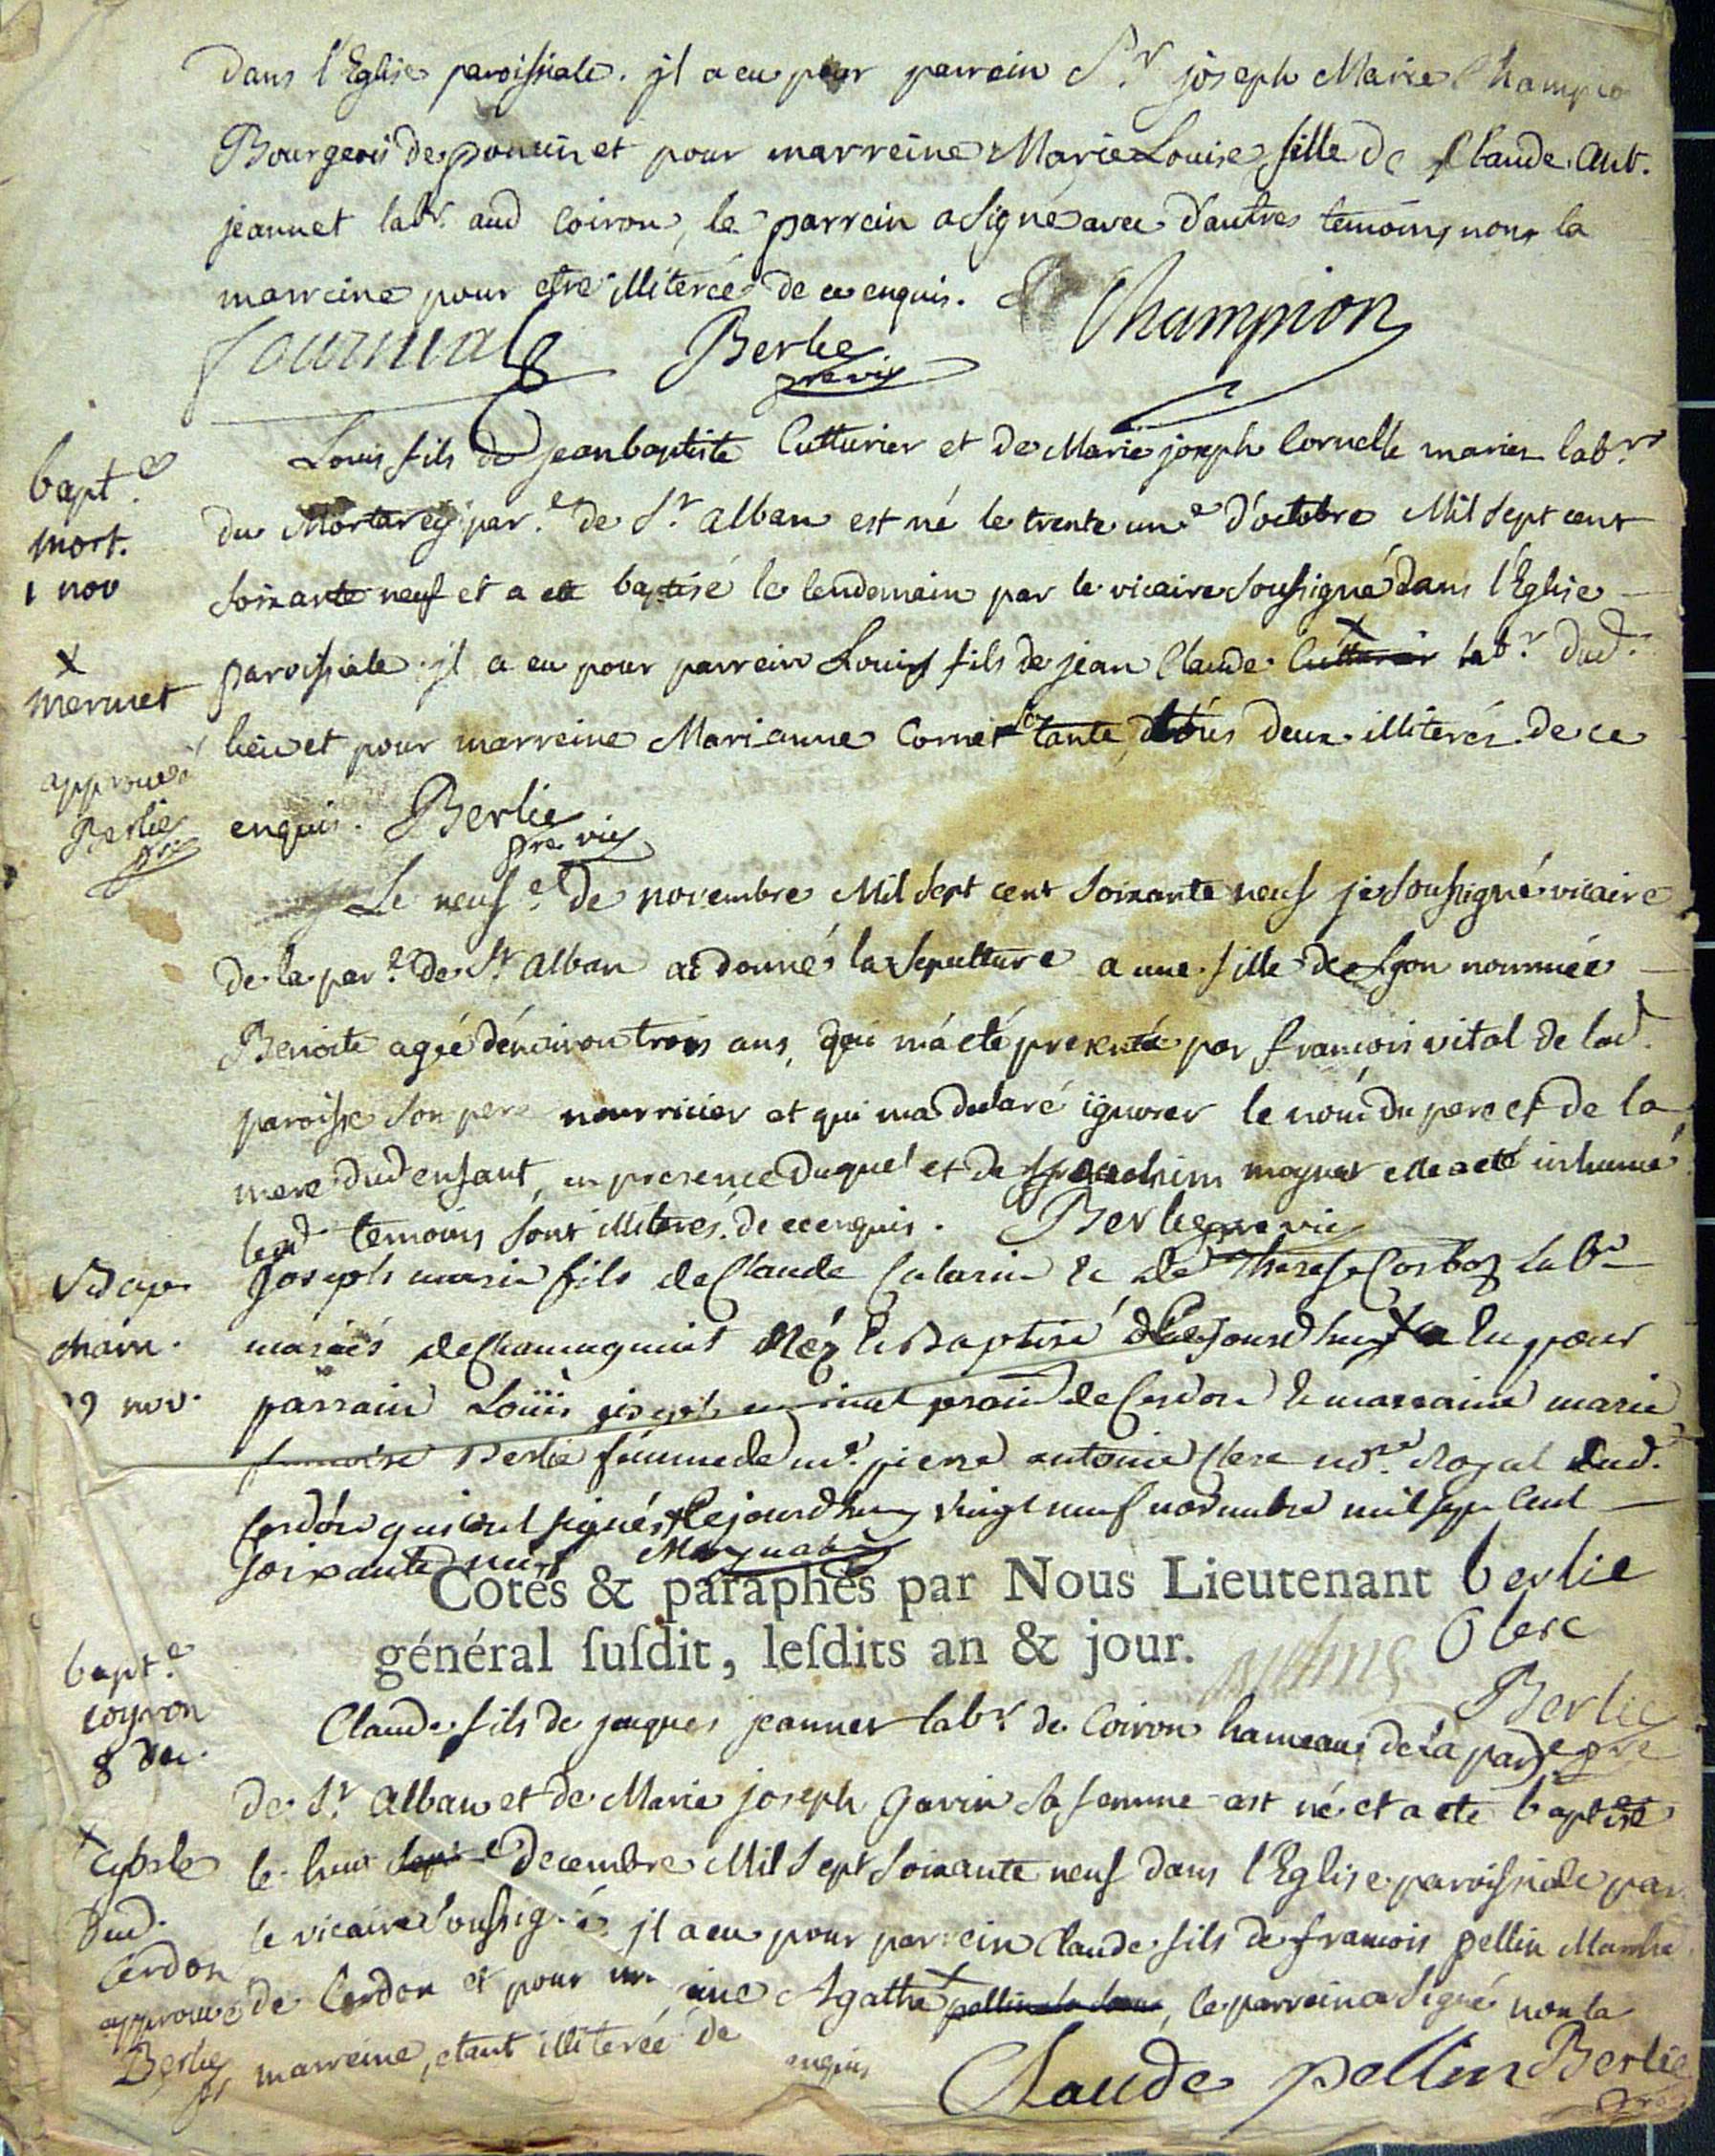 dans l'Eglise paroissiale. jl a eu pour parrein Sr. joseph Marie Champio
Bourgeois de poncin et pour marreine Marie Louise fille de Claude Ant.
jeannet labr. aud Coiron, le parrein a signé avec d'autres temoins, non la
marreine pour estre illiterée de ce enquis.
Champion
Berlie
pre vic
bapt.e
mort.
1 nov
Louis fils de jean baptiste Cutturier et de Marie joseph Cornelle mariez labrs.
du Mortarey par.e de St. alban est né le trente un.e d'octobre Mil Sept cent
soixante neuf et a eté baptisé le lendemain par le vicaire soussigné dans l'Eglise
x
mermet
approuvé
Berlie
pre
paroissiale. jl a eu pour parrein Louis fils de jean Claude x Cutturier labr. dud.
lieu et pour marreine Marianne Cornet sa tante, tous deux illiterés de ce
enquis. Berlie
pre vic
Le neuf.e de novembre Mil Sept cent Soixante neuf je soussigné vicaire
de la par.e de St alban ai donné la Sepulture a une fille de Lyon nommée
Benoite agée d'environ trois ans, qui m'a eté presenté par francois vital de lad.
paroisse son pere nourricier et qui m'a declaré ignorer le nom du pere et de la
mere dud enfant, en presence duquel et de moynet elle a eté inhumé
lesd temoins sont illiterés de ce enquis. Berlie pre vic
Bap.
cham.
29 nov.
Joseph marie fils de Claude & de Therese Corboz Labr
mariés de Né & Baptisé Cejourdhuy a Eu pour
parrain Loüis joseph de Cerdon & marraine marie
Berlie femme de me. pierre antoine Clerc nore. Royal dud.
Cerdon qui ont signés Cejourdhuy vingt neuf novembre mil sept Cent
soixante neuf
Cotés & paraphés par Nous Lieutenant
général ſuſdit, leſdits an & jour.
berlie
Clerc
Berlie
pre
bapt.e
coyron
8 dec.
Claude fils de jaques jeannet labr. de Coiron hameau de la par.e
de St. alban et de Marie joseph Gavin sa femme est né et a eté baptisé
le huit Sept e decembre Mil Sept Soixante neuf dans l'Eglise paroissiale par
le vicaire soussigné. jl a eu pour parrein Claude fils de francois pellin
de Cerdon et pour ine Agathe x pellin sa soeur, le parrein a signé non la
marreine, etant illiterée de enquis
x
dud.
Cerdon
approuvé
Berlie
Claude pellin Berlie
pre